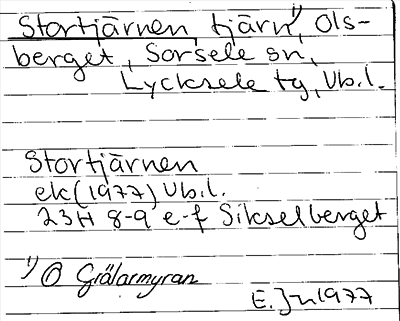 Stortjärnen, tjärn¹⁾, Ols-
berget, Sorsele sn,
Lycksele tg, Vb.l.
Stortjärnen
ek (1977) Vb.l.
23H 8-9 e-f Sikselberget
¹⁾ Grälarmyran
E. Jn 1977